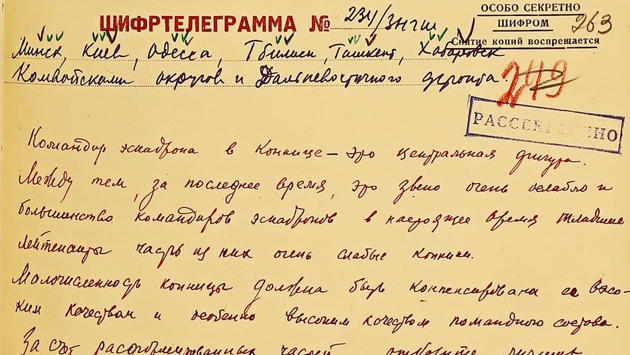 ОСОБО СЕКРЕТНО
ШИФРОМ
Снятие копий воспрещается
263
ШИФРТЕЛЕГРАММА № 234/ЗНГШ
Минск, Киев, Одесса, Тбилиси, Ташкент, Хабаровск
Комвойсками округов и Дальневосточного фронта
249
РАССЕКРЕЧЕНО
Командир эскадрона в коннице – это центральная фигура.
Между тем, за последнее время, это звено очень ослабло и
большинство командиров эскадронов в настоящее время младшие
лейтенанты часть из них очень слабые конники.
Малочисленность конницы должна быть компенсирована ее высо-
ким качеством и особенно высоким качеством командного состава.
За счет расформированных частей отберите лучших